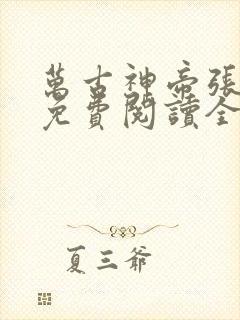 萬古神帝張
免費閱讀全
夏三爺